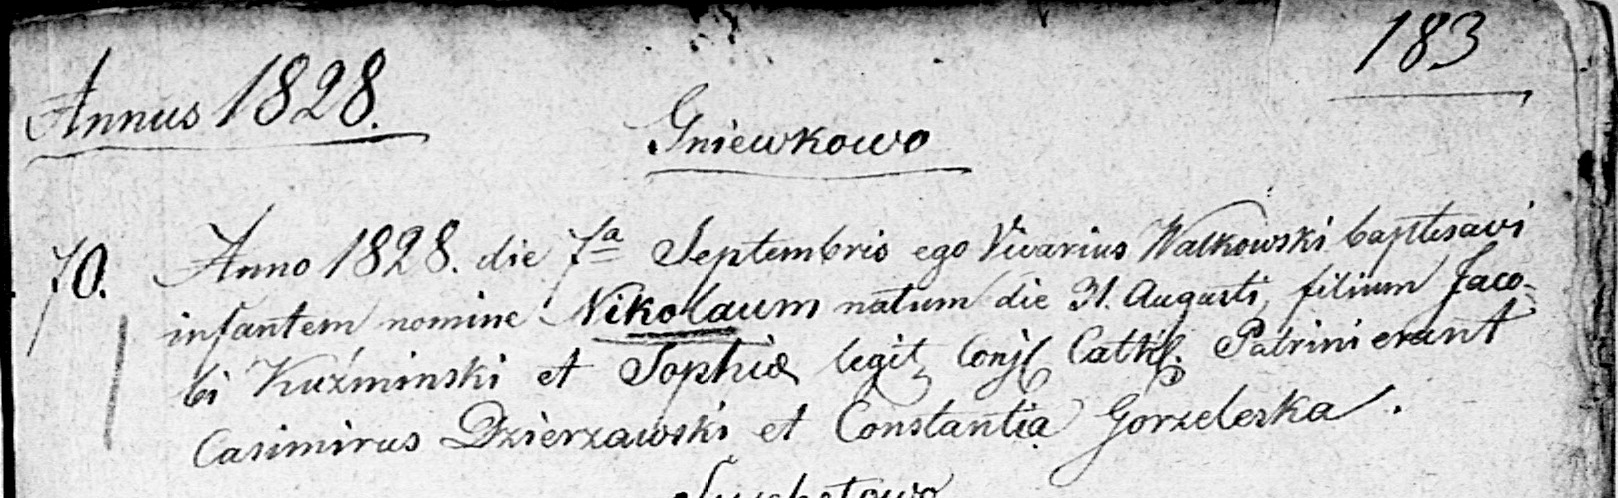 183
Annus 1828.
Gniewkowo
70. Anno 1828. die 7a Septembris ego Vicarius Walkowski baptisavi
infantem nomine Nikolaum natum die 31. Augusti, filium Jaco-
bi Kuźminski et Sophiæ legit. Conj. Cathol. Patrini erant
Casimirus Dzierzawski et Constantia Gorzeleska.